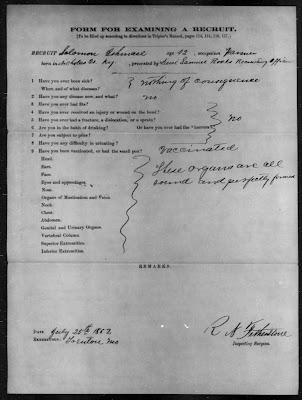 FORM FOR EXAMINING A RECRUIT.
[To be filled up according to directions in Tripler's Manual, pages 114, 115, 116, 117.]
RECRUIT Solomon age 42, occupation Farmer
born in Nicholas Co. Ky., presented by Lieut Samuel Rooks Recruiting Officer
1 Have you ever been sick?
When and of what diseases?
nothing of consequence
2 Have you any disease now, and what? no
3 Have you ever had fits?
4 Have you ever received an injury or wound on the head?
5 Have you ever had a fracture, a dislocation, or a sprain?
no
6 Are you in the habit of drinking? Or have you ever had the "horrors"?
7 Are you subject to piles?
8 Have you any difficulty in urinating?
9 Have you been vaccinated, or had the small pox? vaccinated
Head.
Ears.
Face.
Eyes and appendages.
Nose.
Organs of Mastication and Voice.
Neck.
Chest.
Abdomen.
Genital and Urinary Organs.
Vertebral Column.
Superior Extremities.
Inferior Extremities.
These organs are all
sound and perfectly formed
REMARKS.
DATE July 25th
RENDEZVOUS: Trenton Mo
R A
Inspecting Surgeon.